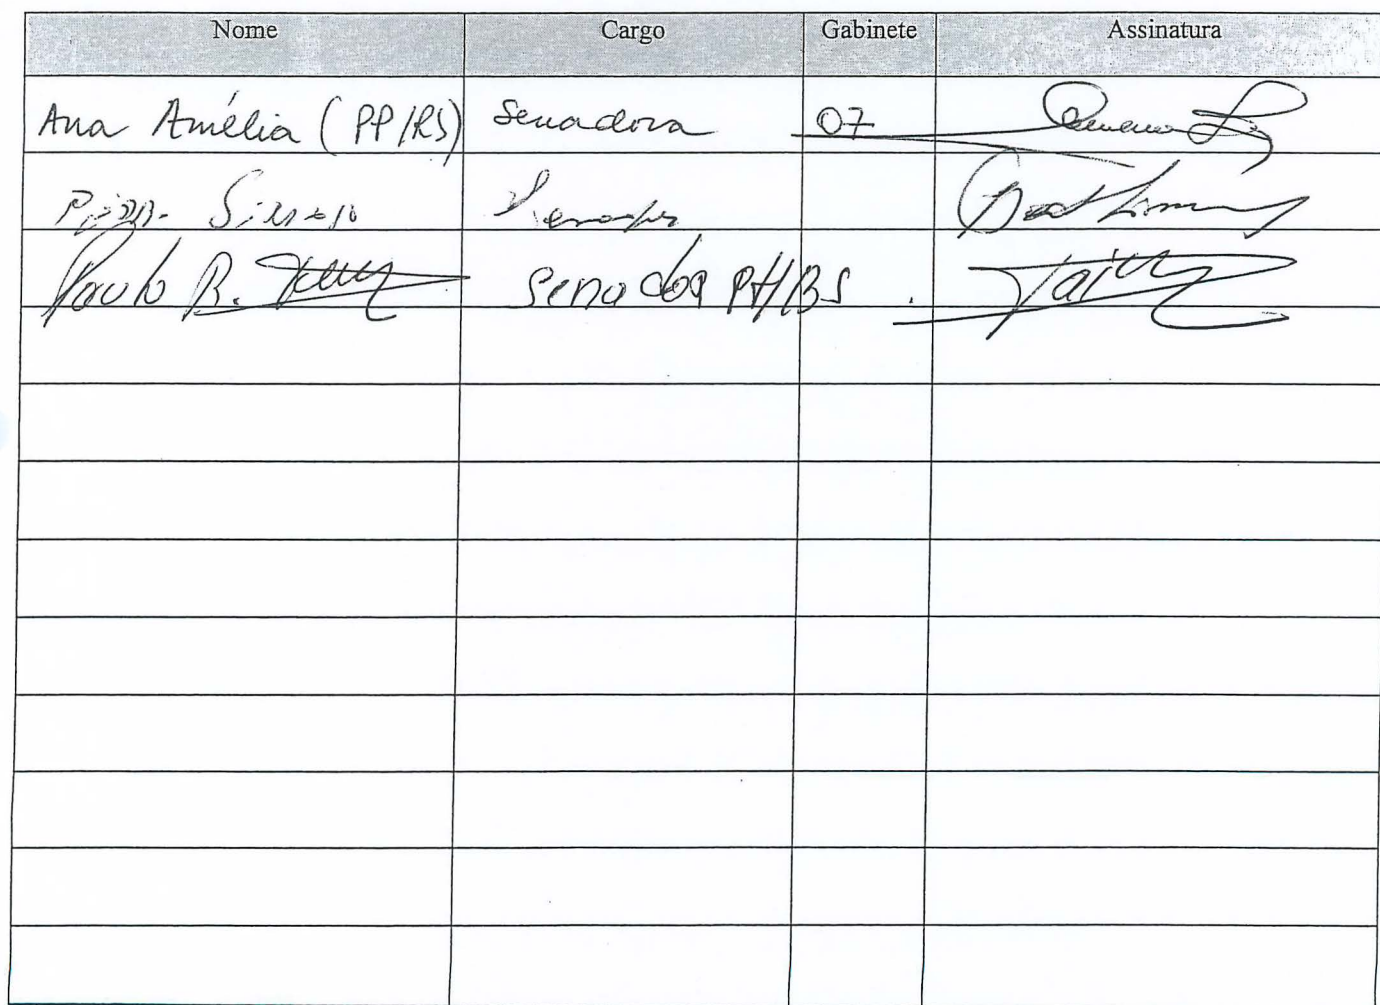 Nome Cargo Gabinete Assinatura
Ana Amélia (PP/RS) Senadora 07
Simon Senador
Paulo R. Senador PT/RS